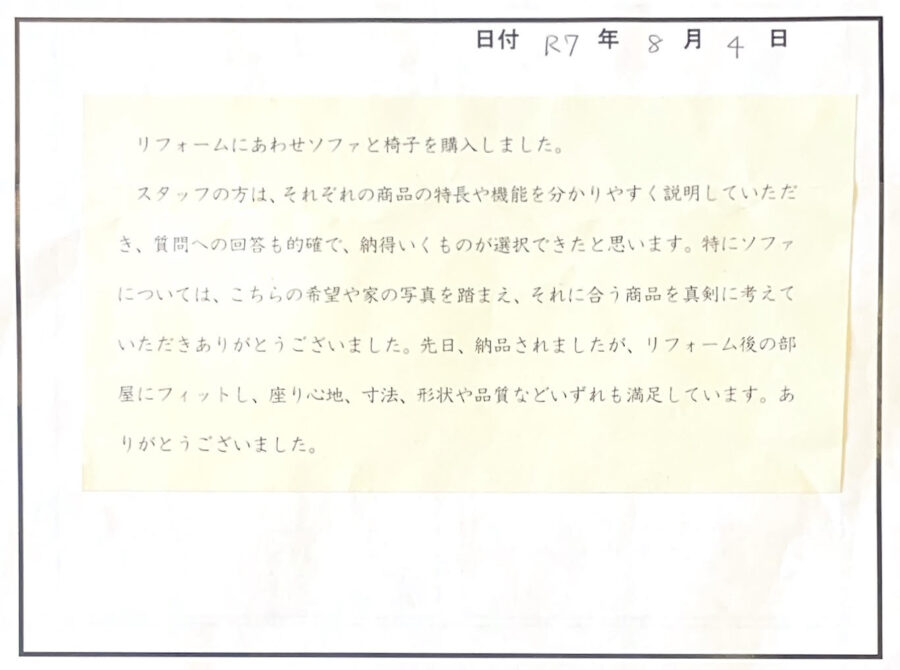 日付 R7 年 8 月 4 日
リフォームにあわせソファと椅子を購入しました。
スタッフの方は、それぞれの商品の特長や機能を分かりやすく説明していただ
き、質問への回答も的確で、納得いくものが選択できたと思います。特にソファ
については、こちらの希望や家の写真を踏まえ、それに合う商品を真剣に考えて
いただきありがとうございました。先日、納品されましたが、リフォーム後の部
屋にフィットし、座り心地、寸法、形状や品質などいずれも満足しています。あ
りがとうございました。